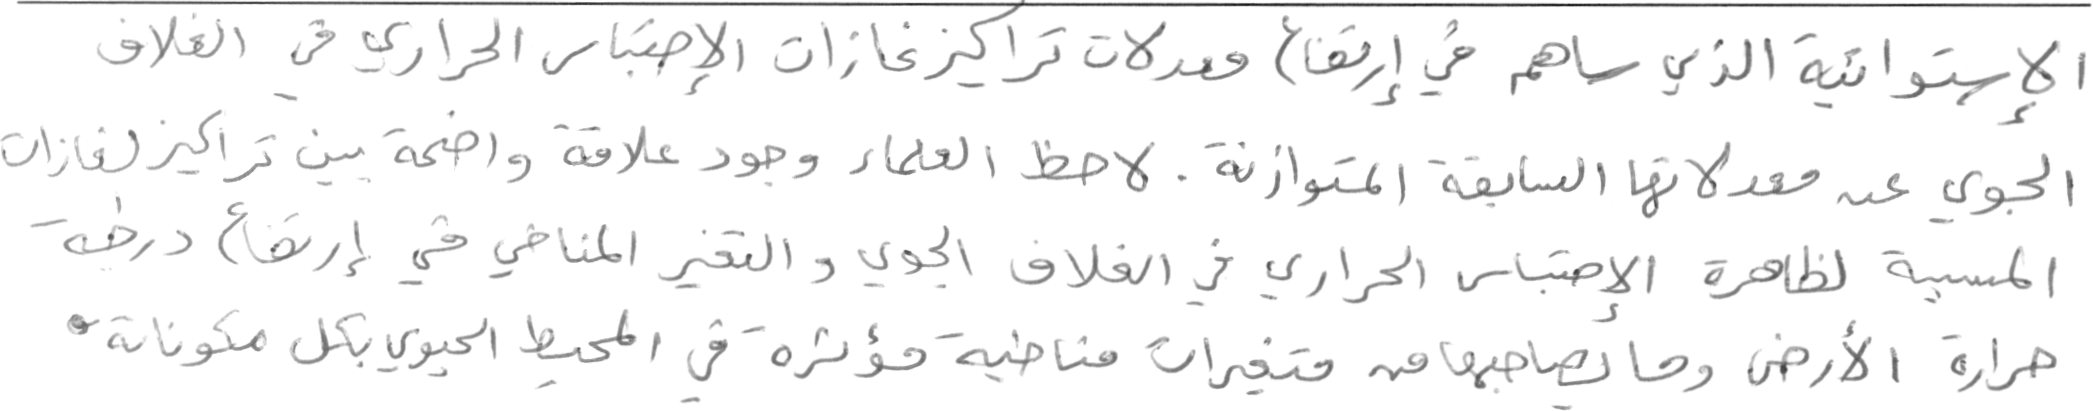 الإستوائية الذي ساهم في إرتفاع معدلات تراكيز غازات الإحتباس الحراري في الغلاف
الجوي عن معدلاتها السابقة المتوازنة . لاحظ العلماء وجود علاقة واضحة بين تراكيز لغازات
المسببة لظاهرة الإحتباس الحراري في الغلاف الجوي و التغير المناخي في إرتفاع درجة
حرارة الأرض وما يصاحبها من متغيرات مناخية مؤثره في المحيط الحيوي بكل مكوناتة.